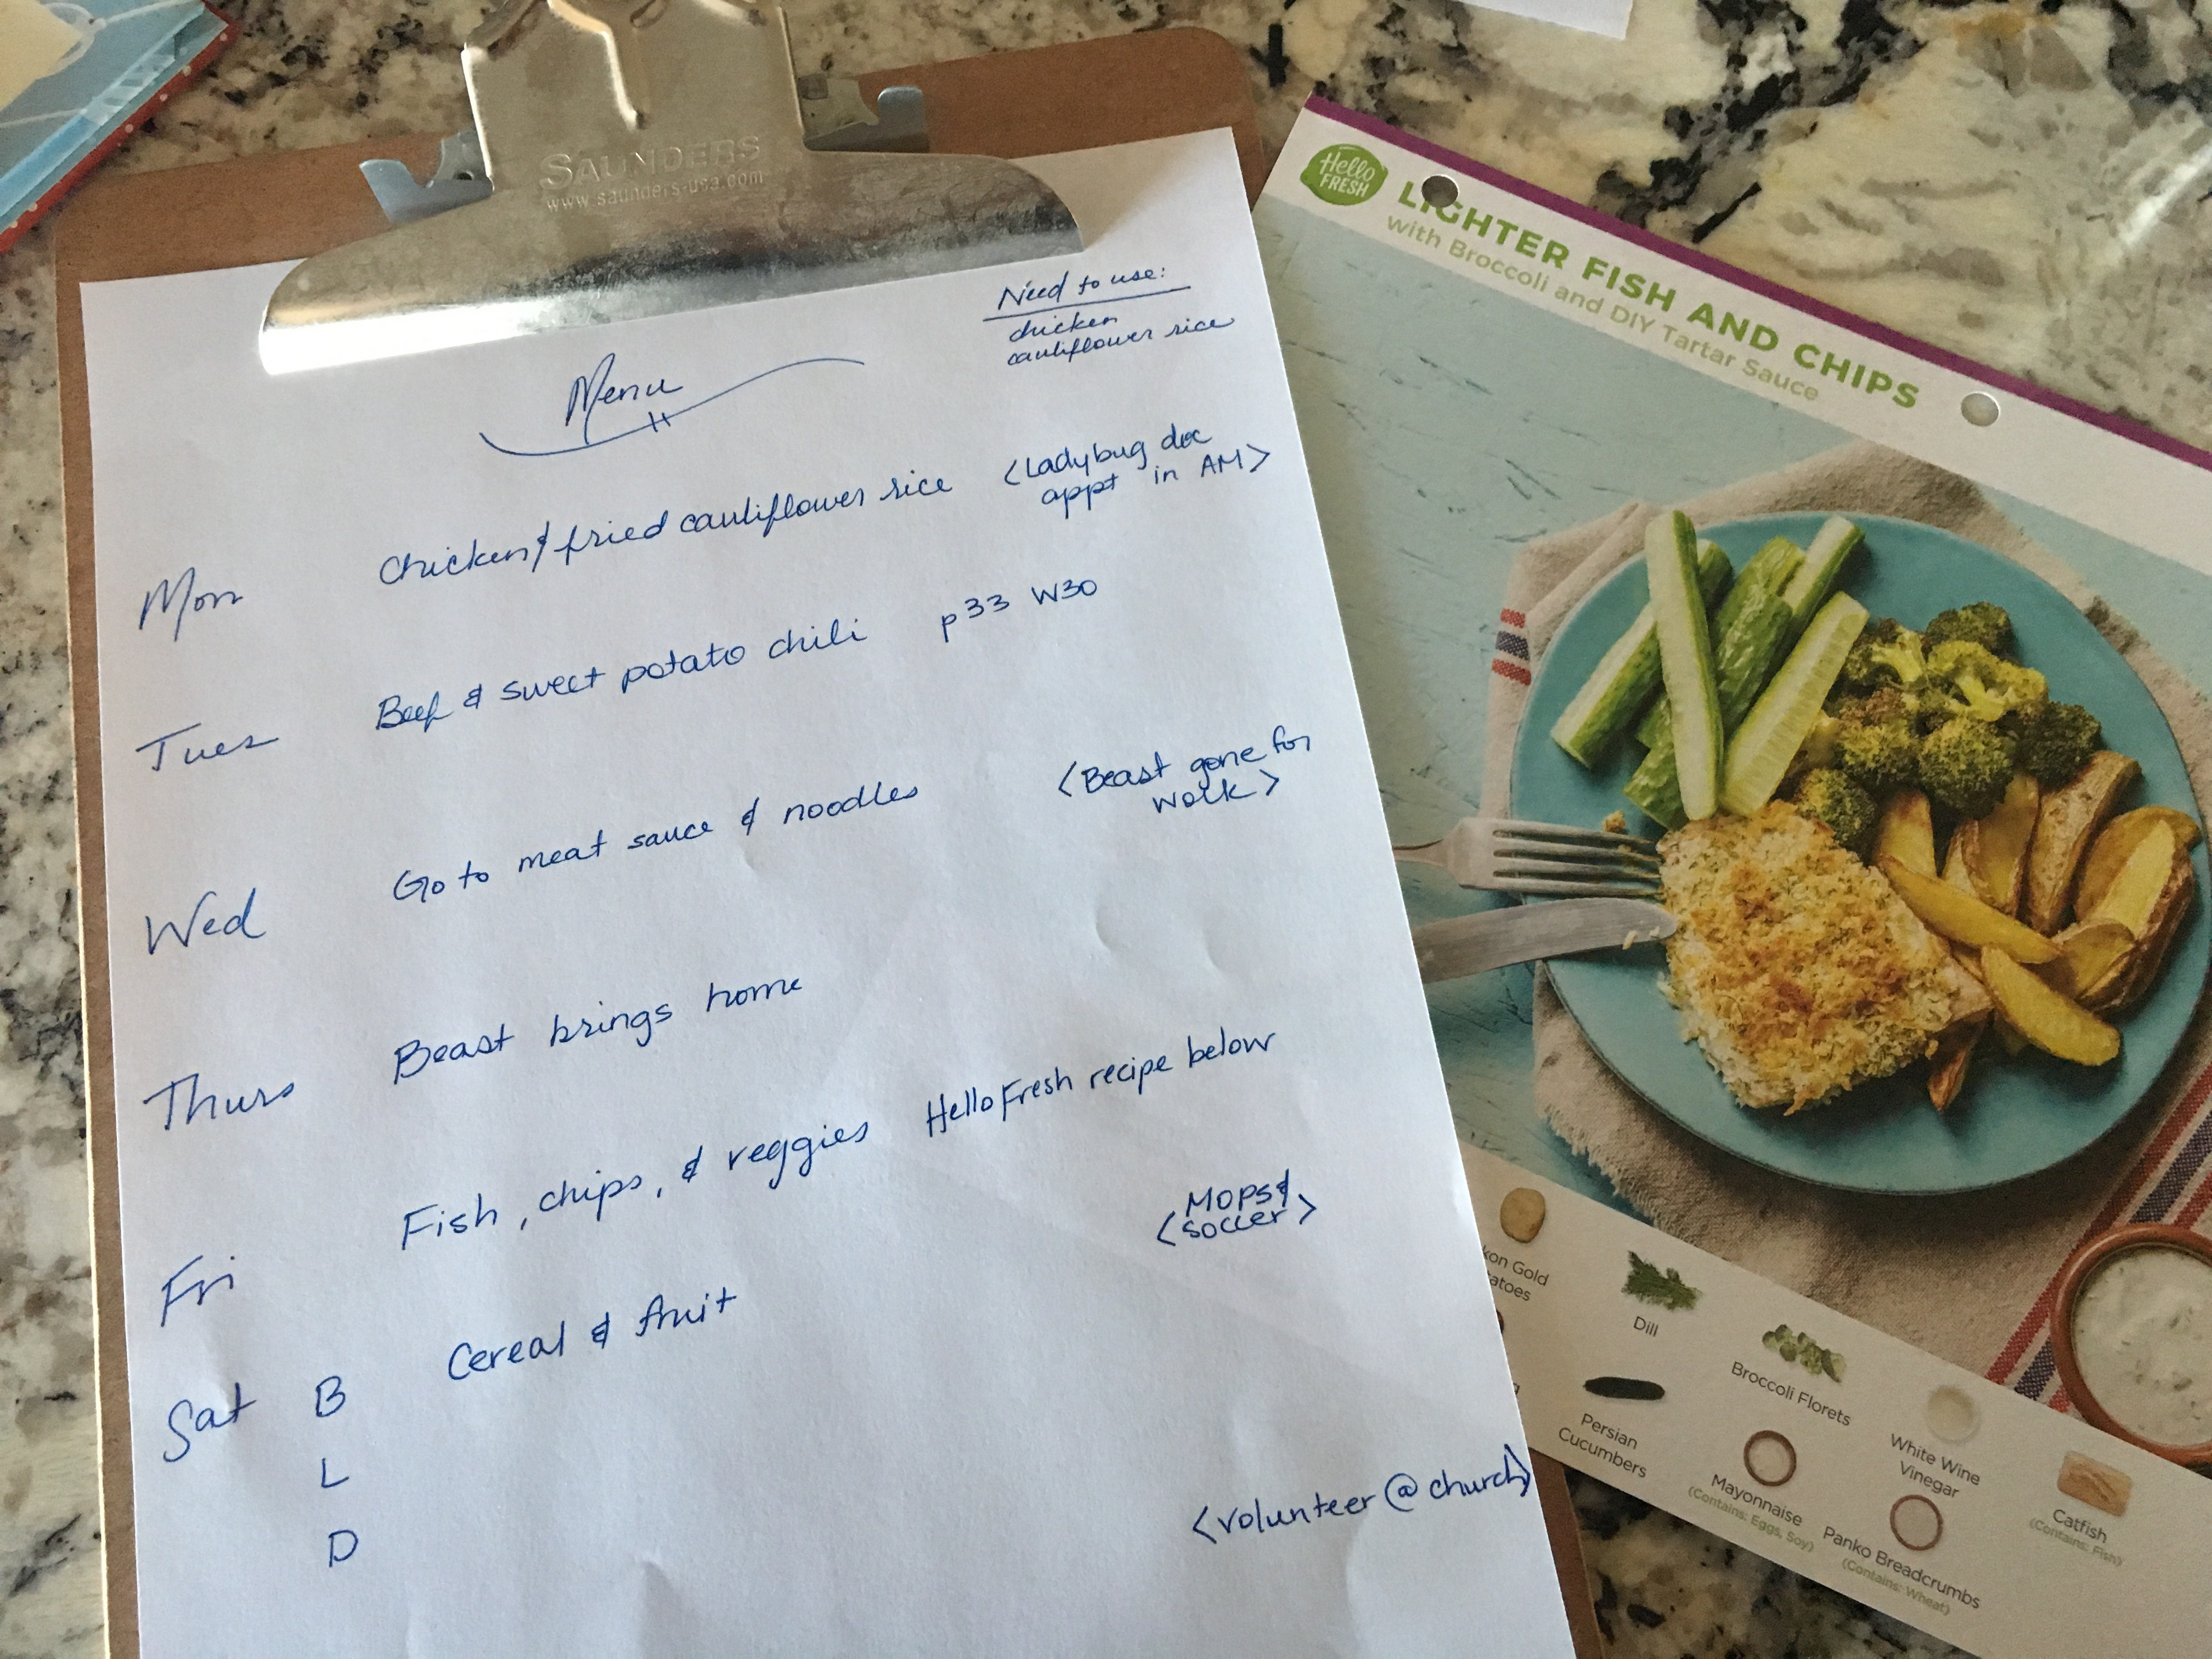 SAUNDERS
www.saunders-usa.com
Need to use:
chicken
cauliflower rice
Menu
Mon Chicken & fried cauliflower rice <Ladybug doc
appt in AM>
Tues Beef & sweet potato chili p33 W30
Wed Go to meat sauce & noodles <Beast gone for
work>
Thurs Beast brings home
Fri Fish, chips, & veggies HelloFresh recipe below
<MOPS &
soccer>
Sat B Cereal & fruit
L
D
<volunteer @ church>
Hello
FRESH
LIGHTER FISH AND CHIPS
with Broccoli and DIY Tartar Sauce
kon Gold
atoes
Dill
Broccoli Florets
White Wine
Vinegar
Catfish
(Contains: Fish)
Persian
Cucumbers
Mayonnaise
(Contains: Eggs, Soy)
Panko Breadcrumbs
(Contains: Wheat)